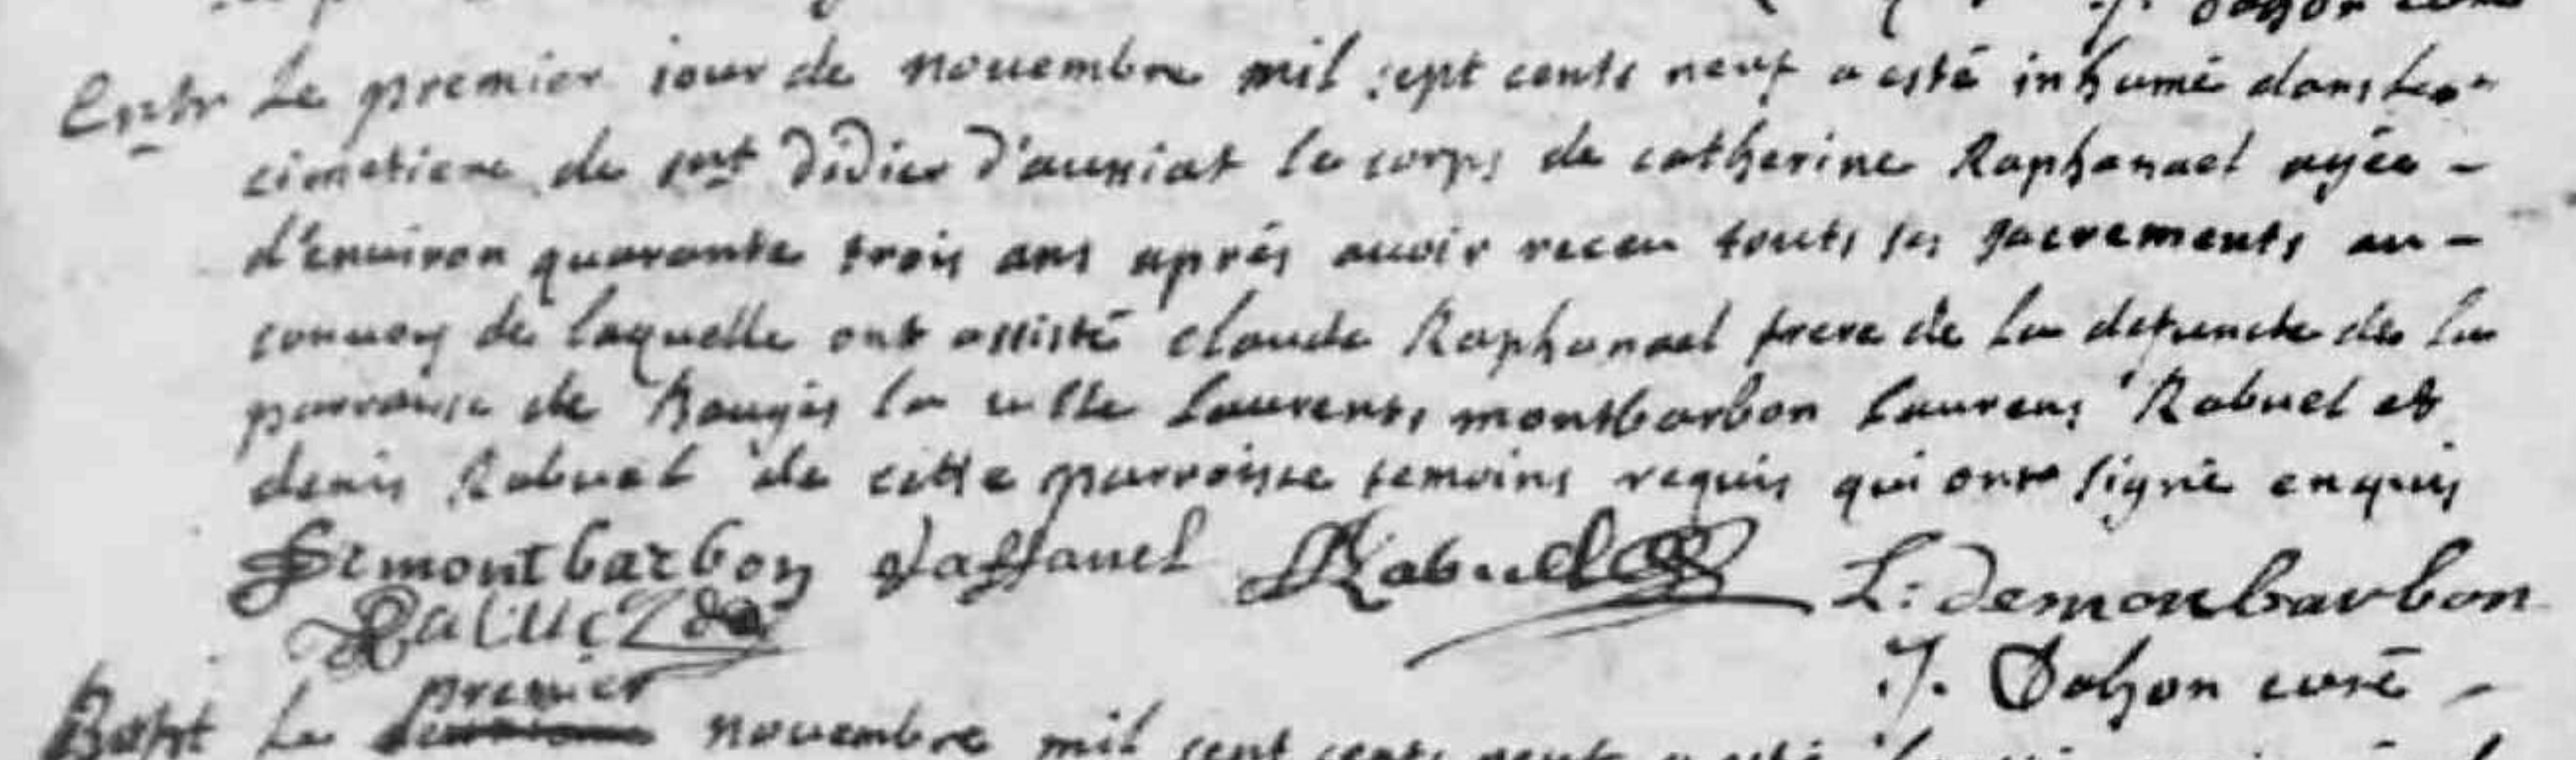 J. Dohon curé
Entr Le premier iour de nouembre mil sept cents neuf a esté inhumé dans le
cimetiere de snt Didier d'aussiat le corps de catherine Raphanael agée -
d'enuiron quarante trois ans aprés auoir receu touts ses sacrements au -
conuoy de laquelle ont assisté claude Raphanael frere de la defuncte de la
parroisse de Baugés la ville Laurents montbarbon Laurens Rabuel et
denis Rabuel de cette parroisse temoins requis qui ont signé enquis
Demontbarbon Raffanel Rabuel L: Demonbarbon
J. Dohon curé -
premier
Bapt Le nouembre mil sept cents neuf a esté